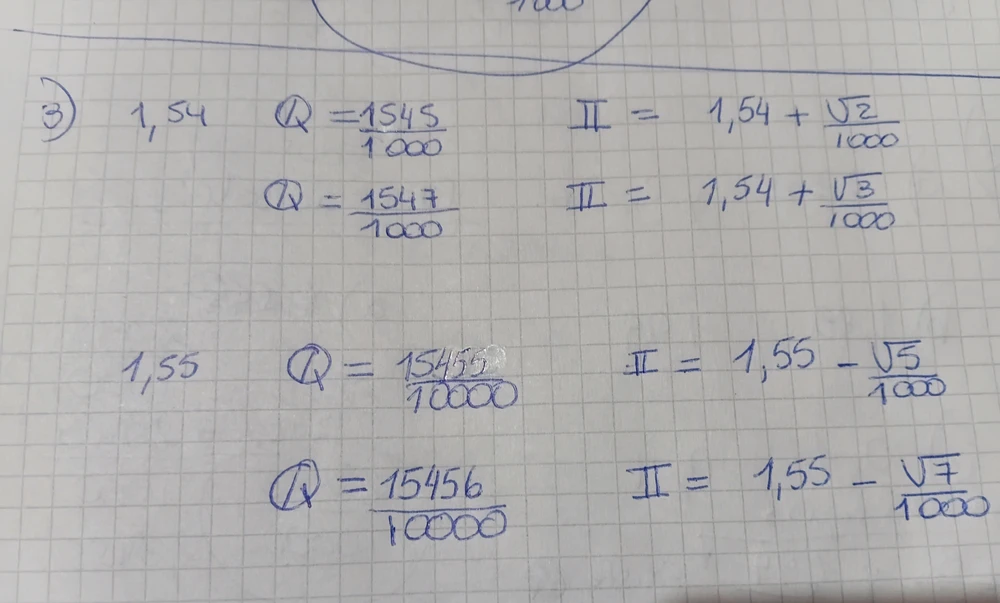 1000
3) 1,54 Q = 1545/1000 II = 1,54 + √2/1000
Q = 1547/1000 II = 1,54 + √3/1000
1,55 Q = 15455/10000 II = 1,55 - √5/1000
Q = 15456/10000 II = 1,55 - √7/1000